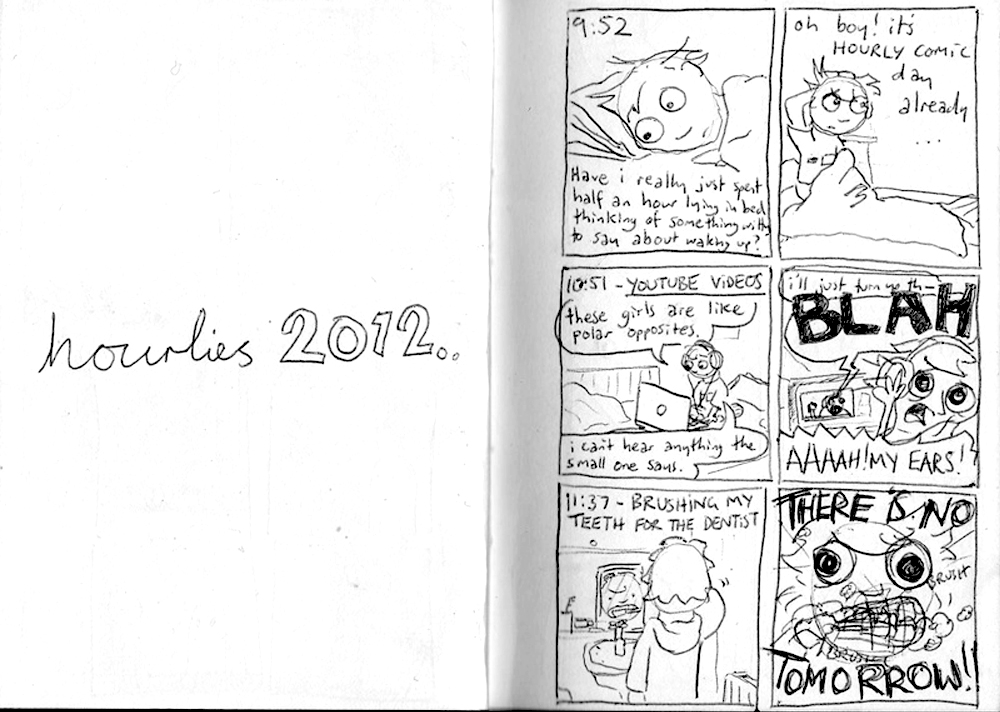 hourlies 2012..
9:52
Have i really just spent
half an hour lying in bed
thinking of something witty
to say about waking up?
oh boy! it's
HOURLY COMIC
day
already
...
10:51 - YOUTUBE VIDEOS
these girls are like
polar opposites.
i can't hear anything the
small one says.
i'll just turn up th-
BLAH
AAAAH! MY EARS!
11:37 - BRUSHING MY
TEETH FOR THE DENTIST
THERE IS NO
BRUSH
BRUSH
TOMORROW!!